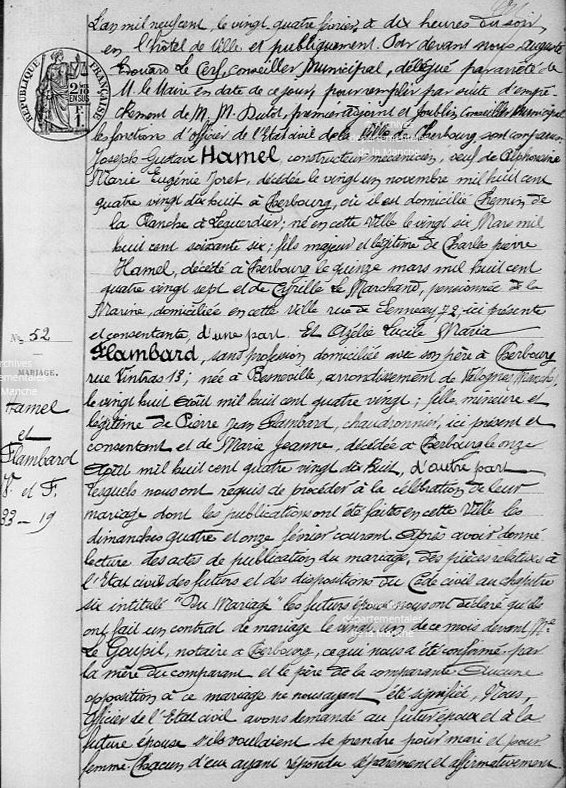 L'an mil neuf cent, le vingt quatre février, à dix heures du soir,
en l'hôtel de Ville et publiquement. Par devant nous, Auguste
Edouard Le Cerf, conseiller Municipal, délégué par arrêté de
M. le Maire en date de ce jour, pour remplir par suite d'empê-
chement de M. M. Dutot, premier adjoint et Joublin, Conseiller Municipal
les fonctions d'officier de l'Etat civil de la Ville de Cherbourg, sont comparus
Joseph Gustave Hamel, constructeur mécanicien, veuf de Alphonsine
Marie Eugénie Joret, décédée le vingt un novembre mil huit cent
quatre vingt dix huit à Cherbourg, où il est domicilié Chemin de
la Planche à Leguerdier; né en cette ville le vingt six Mars mil
huit cent soixante six; fils majeur et légitime de Charles pierre
Hamel, décédé à Cherbourg le quinze mars mil huit cent
quatre vingt sept et de Cyrille Le Marchand, pensionnée de la
Marine, domiciliée en cette Ville rue de Sennecey 22, ici présente
et consentante, d'une part. Et Azélie Lucile Maria
Flambard, sans profession domiciliée avec son père à Cherbourg
rue Vintras 13; née à Barneville, arrondissement de Valognes (Manche)
le vingt huit Août mil huit cent quatre vingt; fille mineure et
légitime de Pierre Jean Flambard, chaudronnier, ici présent et
consentant et de Marie Jeanne, décédée à Cherbourg le onze
Août mil huit cent quatre vingt dix huit, d'autre part
Lesquels nous ont requis de procéder à la célébration de leur
mariage dont les publications ont été faites en cette Ville les
dimanches quatre et onze février courant. Après avoir donné
lecture des actes de publication du mariage, des pièces relatives à
l'Etat civil des futurs et des dispositions du Code civil au chapitre
six intitulé "Du Mariage" les futurs époux nous ont déclaré qu'ils
ont fait un contrat de mariage le vingt un de ce mois devant Me
Le Goupil, notaire à Cherbourg, ce qui nous a été confirmé par
la mère du comparant et le père de la comparante. Aucune
opposition à ce mariage ne nous ayant été signifiée, Nous,
Officier de l'Etat civil avons demandé au futur époux et à la
future épouse s'ils voulaient se prendre pour mari et pour
femme. Chacun d'eux ayant répondu séparément et affirmativement
RÉPUBLIQUE FRANÇAISE
No 52
MARIAGE.
Hamel
et
Flambard
V. et F.
33 – 19
archives
départementales
de la Manche